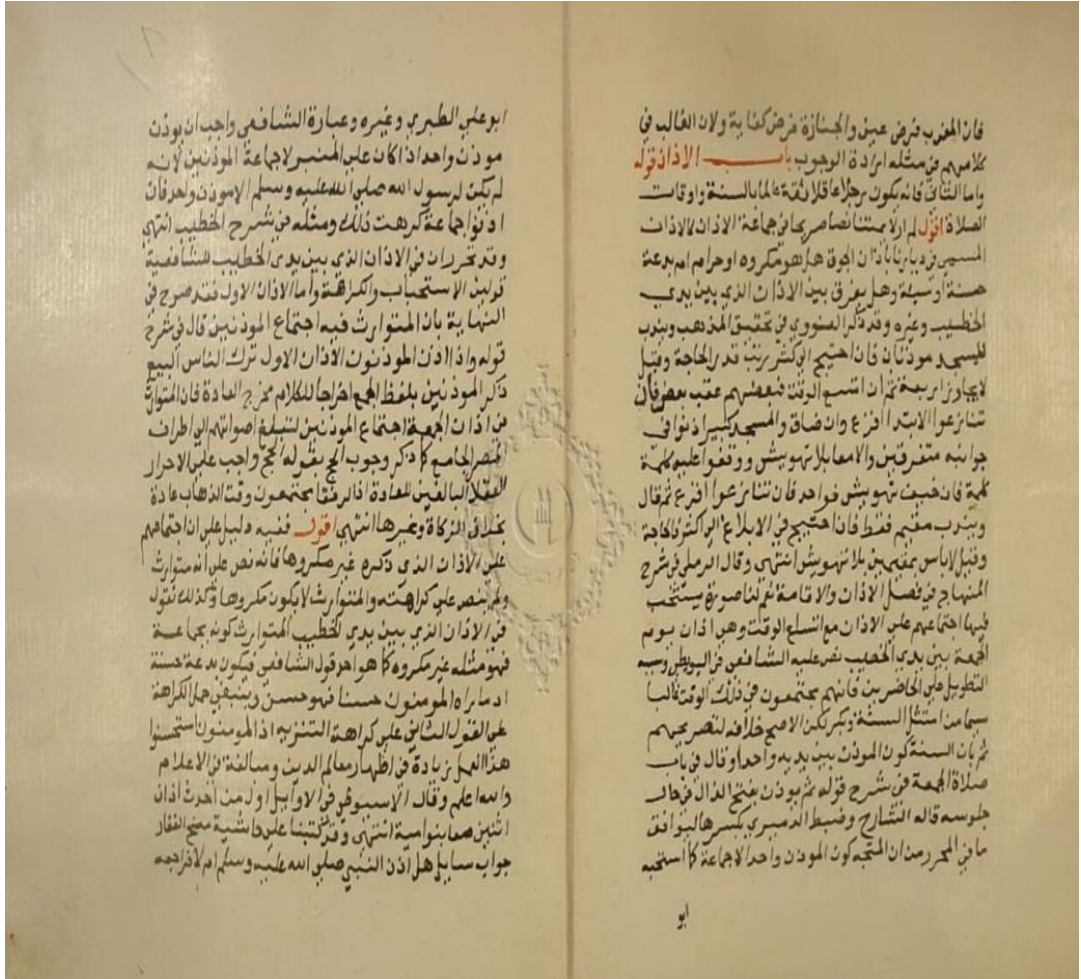 فان المغرب فرض عين والجنازة فرض كفاية ولان الغالب في
كلامهم في مثله ارادة الوجوب باب الاذان قوله
واما الثاني فانه يكون رجلا عاقلا ثقة عالما بالسنة واوقات
الصلاة اقول لم ار لائمتنا نصا صريحا في جماعة الاذان كالاذان
المسمى في ديارنا باذان الجوق هل هو مكروه او حرام ام بدعة
حسنة او سيئة وهل يفرق بين الاذان الذي بين يدي
الخطيب وغيره وقد ذكر النووي في تحقيق المذهب ويندب
للمسجد موذنان فان احتيج الى كثر رتب قدر الحاجة وقيل
لا يجاوز اربعة ثم ان اتسع الوقت فبعضهم عقب بعض فان
تنازعوا الابتدا اقرع وان ضاق والمسجد كبير اذنوا في
جوانبه متفرقين والا معا بلا تهويش ووقفوا عليه كلمة
كلمة فان خيف تهويش فواحد فان تنازعوا اقرع ثم قال
ويندب مقيم فقط فان احتيج في الابلاغ الى اكثر فالحاجة
وقيل لا باس بمقيمين بلا تهويش انتهى وقال الرملي في شرح
المنهاج في فصل الاذان والاقامة نعم لنا صورة يستحب
فيها اجتماعهم على الاذان مع اتساع الوقت وهي اذان يوم
الجمعة بين يدي الخطيب نص عليه الشافعي في البويطي وسببه
التطويل على الحاضرين فانهم يجتمعون في ذلك الوقت غالبا
سيما من امتثل السنة وبكر لكن الاصح خلافه لتصريحهم
ثم بان السنة كون الموذن بين يديه واحدا وقال في باب
صلاة الجمعة في شرح قوله ثم يوذن بفتح الذال في حال
جلوسه قاله الشارح وضبط الدميري بكسرها ليوافق
ما في المحرر من ان المتجه كون الموذن واحد الا جماعة كما استحبه
ابو
ابو علي الطبري وغيره وعبارة الشافعي واجب ان يوذن
موذن واحد اذا كان على المنبر لا جماعة الموذنين لانه
لم يكن لرسول الله صلى الله عليه وسلم الا موذن واحد فان
اذنوا جماعة كرهت ذلك ومثله في شرح الخطيب انتهى
وقد تحرر ان في الاذان الذي بين يدي الخطيب للشافعية
قولين الاستحباب والكراهة واما الاذان الاول فقد صرح في
النهاية بان المتوارث فيه اجتماع الموذنين قال في شرح
قوله واذا اذن الموذنون الاذان الاول ترك الناس البيع
ذكر الموذنين بلفظ الجمع اخراجا للكلام مخرج العادة فان المتوارث
في اذان الجمعة اجتماع الموذنين لتبلغ اصواتهم الى اطراف
المصر الجامع كما ذكر وجوب الحج بقوله الحج واجب على الاحرار
العقلا البالغين للعادة اذ الرفقا يجتمعون وقت الذهاب عادة
بخلاف الزكاة وغيرها انتهى اقول ففيه دليل على ان اجتماعهم
على الاذان الذي ذكره غير مكروه فانه نص على انه متوارث
ولم ينص على كراهته والمتوارث لا يكون مكروها وكذلك نقول
في الاذان الذي بين يدي الخطيب المتوارث كونه بجماعة
فهو مثله غير مكروه كما هو احد قول الشافعي فيكون بدعة حسنة
اد ما راه المومنون حسنا فهو حسن وينبغي حمل الكراهة
على القول الثاني على كراهة التنزيه اذ المومنون استحسنوا
هذا العمل زيادة في اظهار معالم الدين ومبالغة في الاعلام
والله اعلم وقال الاسيوطي في الاوايل اول من احدث اذان
اثنين معا بنوامية انتهى وقد كتبنا على حاشية منح الغفار
جواب سايل هل اذن النبي صلى الله عليه وسلم ام لا فراجعه